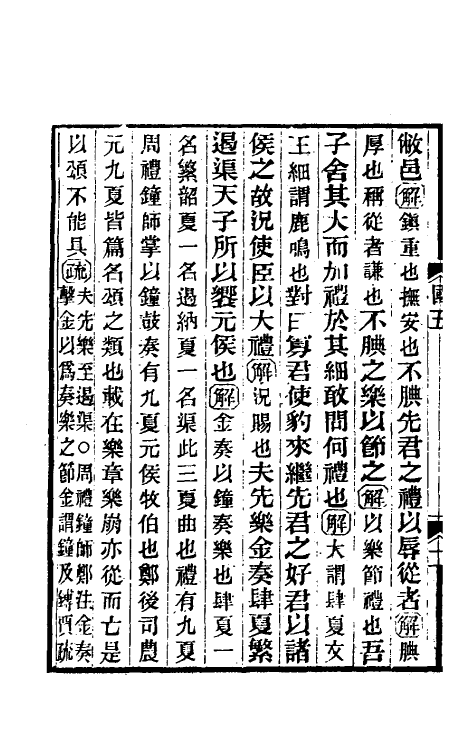 敝邑解鎭重也撫安也不腆先君之禮以辱從者解腆
厚也稱從者謙也不腆之樂以節之解以樂節禮也吾
子舍其大而加禮於其細敢問何禮也解大謂肆夏文
王細謂鹿鳴也對曰寡君使豹來繼先君之好君以諸
侯之故況使臣以大禮解況賜也夫先樂金奏肆夏繁
遏渠天子所以饗元侯也解金奏以鐘奏樂也肆夏一
名繁韶夏一名遏納夏一名渠此三夏曲也禮有九夏
周禮鐘師掌以鐘鼓奏有九夏元侯牧伯也鄭後司農
元九夏皆篇名頌之類也載在樂章樂崩亦從而亡是
以頌不能具疏夫先樂至遏渠○周禮鐘師鄭注金奏
擊金以爲奏樂之節金謂鐘及鎛賈疏
國五